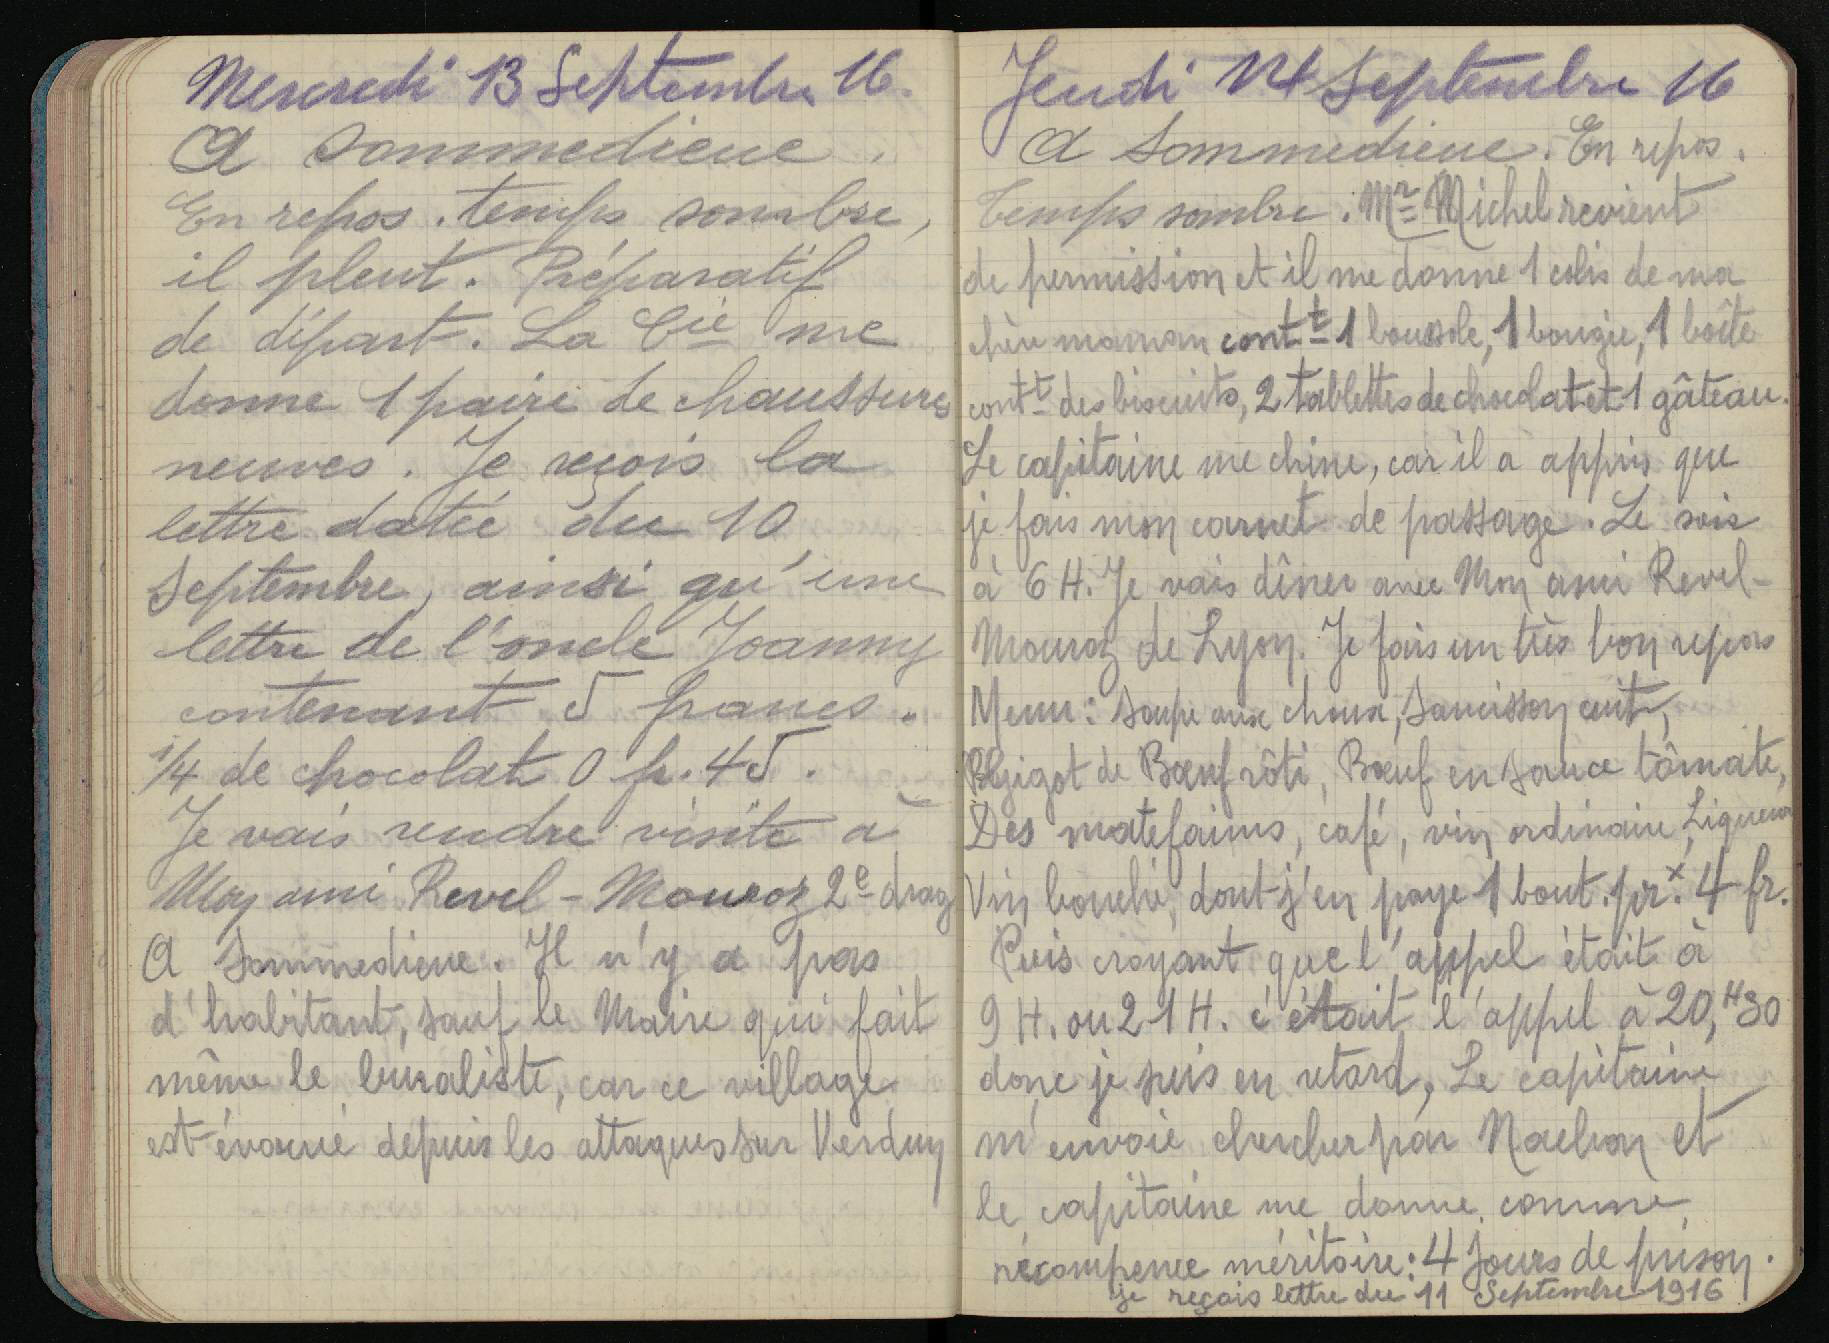 Mercredi 13 Septembre 16.
A Sommedieue.
En repos. temps sombre,
il pleut. Préparatif
de départ. La Cie me
donne 1 paire de chaussures
neuves. Je reçois la
lettre datée du 10
Septembre, ainsi qu'une
lettre de l'oncle Joanny
contenant 5 francs.
1/4 de chocolat 0 fr. 45.
Je vais rendre visite à
Mon ami Revel-Mouroz 2e drag
A Sommedieue. Il n'y a pas
d'habitant, sauf le Maire qui fait
même le buraliste, car ce village
est évacué depuis les attaques sur Verdun
Jeudi 14 Septembre 16
A Sommedieue. En repos.
Temps sombre. Mr Michel revient
de permission et il me donne 1 colis de ma
chère maman contt 1 boussole, 1 bougie, 1 boîte
contt des biscuits, 2 tablettes de chocolat et 1 gâteau.
Le capitaine me chine, car il a appris que
je fais mon carnet de passage. Le soir
à 6 H. Je vais dîner avec Mon ami Revel-
Mouroz de Lyon. Je fais un très bon repas
Menu: Soupe aux choux, Saucisson cuit,
Gigot de Bœuf rôti, Bœuf en sauce tômate,
Des matefaims, café, vin ordinaire, Liqueur
Vin bouché, dont j'en paye 1 bout. prx. 4 fr.
Puis croyant que l'appel était à
9 H. ou 21 H. c'était l'appel à 20,H30
donc je suis en retard, Le capitaine
m'envoie chercher par Nachon et
le capitaine me donne comme
récompence méritoire: 4 Jours de prison.
je reçois lettre du 11 Septembre 1916